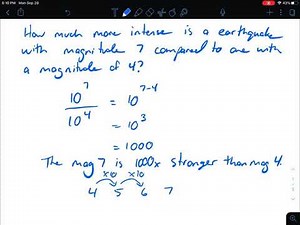 8:10 PM Mon Sep 28
43%
How much more intense is a earthquake
with magnitude 7 compared to one with
a magnitude of 4?
10^7 / 10^4 = 10^7-4
= 10^3
= 1000
The mag 7 is 1000x stronger than mag 4.
x10 x10
4 5 6 7